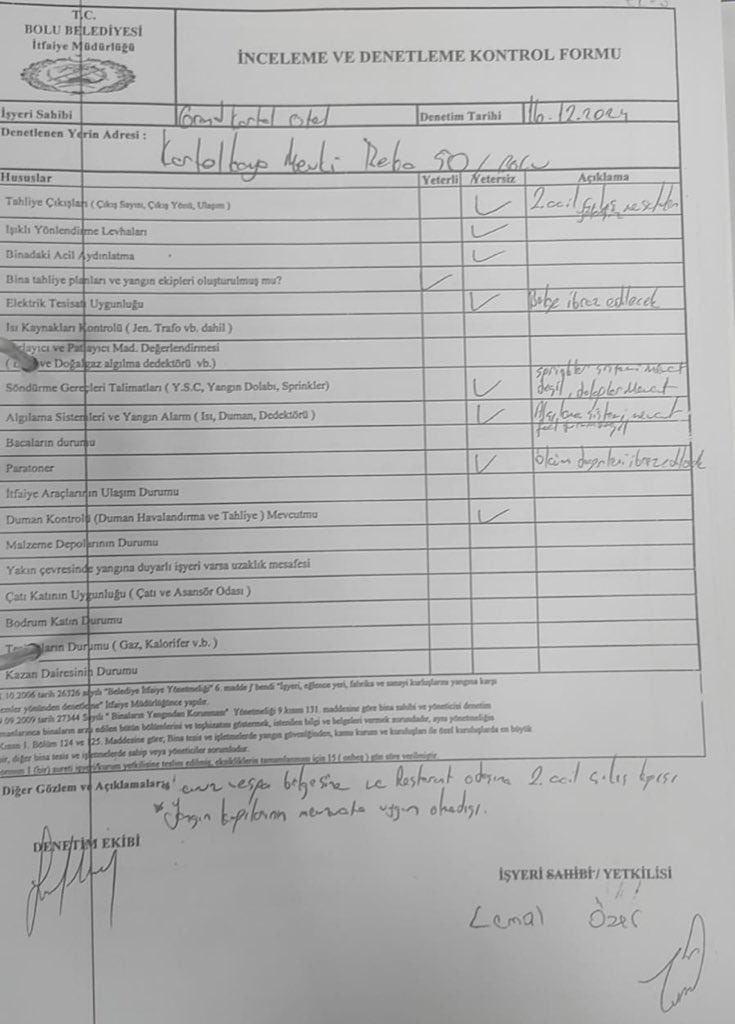 T.C.
BOLU BELEDİYESİ
İtfaiye Müdürlüğü
İNCELEME VE DENETLEME KONTROL FORMU
İşyeri Sahibi Grand Kartal Otel Denetim Tarihi 16.12.2024
Denetlenen Yerin Adresi :
Kartalkaya Mevki
Hususlar Yeterli Yetersiz Açıklama
Tahliye Çıkışları ( Çıkış Sayısı, Çıkış Yönü, Ulaşım ) 2. acil çıkış
Işıklı Yönlendirme Levhaları
Binadaki Acil Aydınlatma
Bina tahliye planları ve yangın ekipleri oluşturulmuş mu?
Elektrik Tesisatı Uygunluğu Belge ibraz edilecek
Isı Kaynakları Kontrolü ( Jen. Trafo vb. dahil )
ve Patlayıcı Mad. Değerlendirmesi
ve Doğalgaz algılma dedektörü vb.)
Söndürme Gereçleri Talimatları ( Y.S.C, Yangın Dolabı, Sprinkler) sprinkler sistemi mevcut
değil, dolaplar mevcut
Algılama Sistemleri ve Yangın Alarm ( Isı, Duman, Dedektörü ) Algılama sistemi mevcut
Bacaların durumu
Paratoner Ölçüm değerleri ibraz edilecek
İtfaiye Araçlarının Ulaşım Durumu
Duman Kontrolü (Duman Havalandırma ve Tahliye ) Mevcutmu
Malzeme Depolarının Durumu
Yakın çevresinde yangına duyarlı işyeri varsa uzaklık mesafesi
Çatı Katının Uygunluğu ( Çatı ve Asansör Odası )
Bodrum Katın Durumu
Durumu ( Gaz, Kalorifer v.b. )
Kazan Dairesinin Durumu
10.2006 tarih 26326 sayılı "Belediye İtfaiye Yönetmeliği" 6. madde f bendi "İşyeri, eğlence yeri, fabrika ve sanayi kuruluşlarını yangına karşı
önlemler yönünden denetleme" İtfaiye Müdürlüğünce yapılır.
09 2009 tarih 27344 Sayılı " Binaların Yangından Korunması" Yönetmeliği 9 kısım 131. maddesine göre bina sahibi ve yöneticisi denetim
elemanlarınca binaların arzu edilen bütün bölümlerini ve teçhizatını göstermek, istenilen bilgi ve belgeleri vermek zorundadır, aynı yönetmeliğin
Kısım 1. Bölüm 124 ve 125. Maddesine göre; Bina tesis ve işletmelerde yangın güvenliğinden, kamu kurum ve kuruluşları ile özel kuruluşlarda en büyük
amir, diğer bina tesis ve işletmelerde sahip veya yöneticiler sorumludur.
1 (bir) sureti işyeri/kurum yetkilisine teslim edilmiş, eksikliklerin tamamlanması için 15 ( onbeş ) gün süre verilmiştir.
Diğer Gözlem ve Açıklamalar: ve Restorant odasına 2. acil çıkış kapısı
* Yangın kapılarının mevzuata uygun olmadığı.
DENETİM EKİBİ
İŞYERİ SAHİBİ / YETKİLİSİ
Cemal Özer